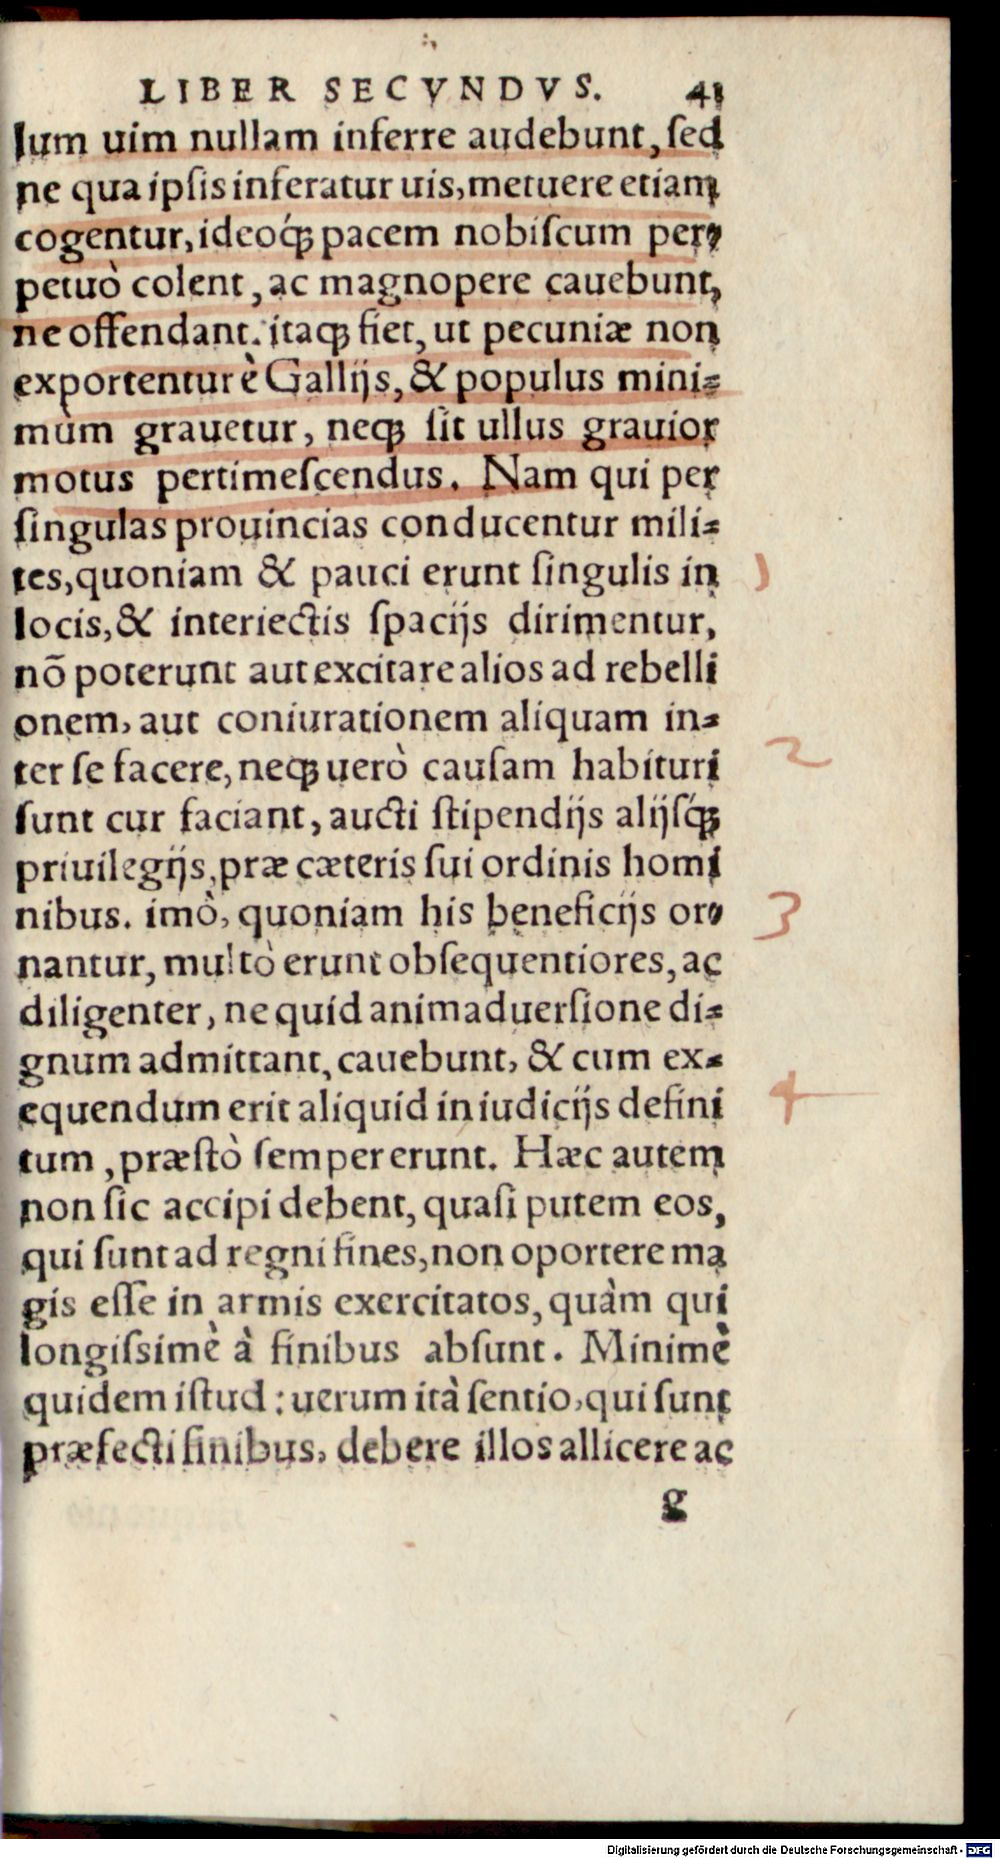 LIBER SECVNDVS. 41
lum uim nullam inferre audebunt, sed
ne qua ipsis inferatur uis, metuere etiam
cogentur, ideoq́; pacem nobiscum per-
petuò colent, ac magnopere cauebunt,
ne offendant. itaq; fiet, ut pecuniæ non
exportentur è Gallijs, & populus mini-
mùm grauetur, neq; sit ullus grauior
motus pertimescendus. Nam qui per
singulas prouincias conducentur mili-
tes, quoniam & pauci erunt singulis in
locis, & interiectis spacijs dirimentur,
nō poterunt aut excitare alios ad rebelli
onem, aut coniurationem aliquam in-
ter se facere, neq; uerò causam habituri
sunt cur faciant, aucti stipendijs alijsq́;
priuilegijs, præ cæteris sui ordinis homi
nibus. imò, quoniam his beneficijs or-
nantur, multò erunt obsequentiores, ac
diligenter, ne quid animaduersione di-
gnum admittant, cauebunt, & cum ex-
equendum erit aliquid in iudicijs defini
tum, præstò semper erunt. Hæc autem
non sic accipi debent, quasi putem eos,
qui sunt ad regni fines, non oportere ma
gis esse in armis exercitatos, quàm qui
longissimè à finibus absunt. Minimè
quidem istud: uerum ità sentio, qui sunt
præfecti finibus, debere illos allicere ac
g
1
2
3
4
Digitalisierung gefördert durch die Deutsche Forschungsgemeinschaft - DFG